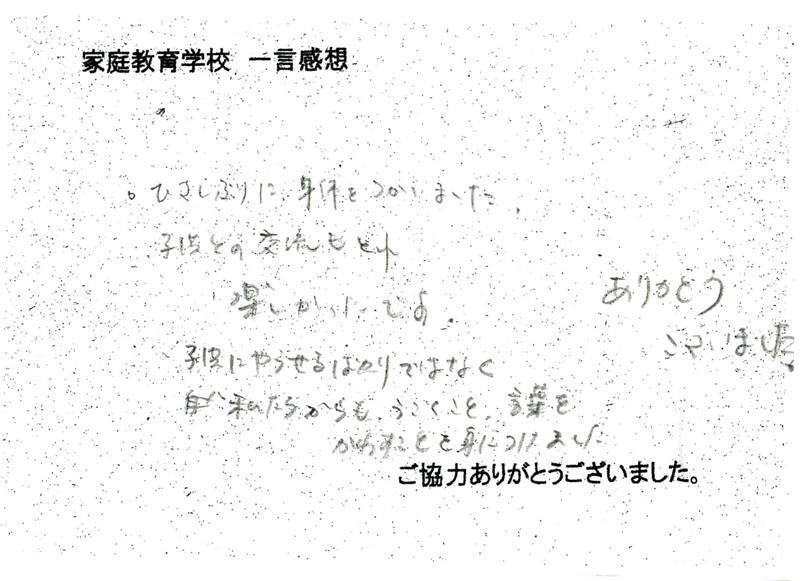 家庭教育学校 一言感想
。ひさしぶりに、身体をつかいました。
子供との交流もとれ
楽しかったです。
ありがとう
ございました。
子供にやらせるばかりではなく
私たちからも、うごくこと、言葉を
かわすことを身につけました
ご協力ありがとうございました。